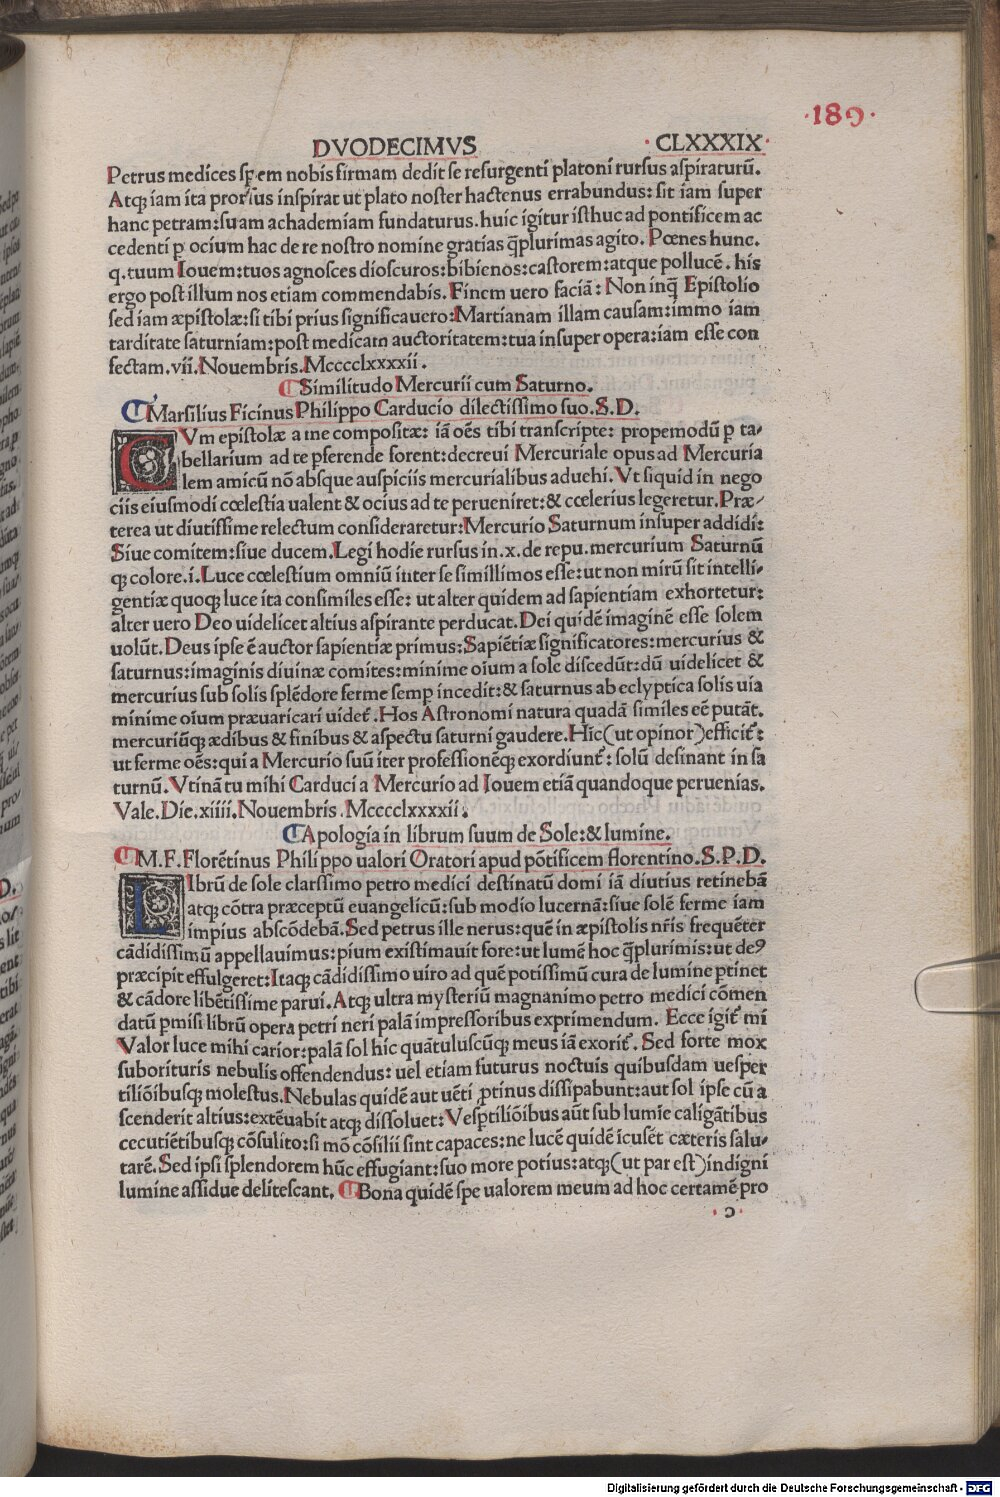 ·189·
DVODECIMVS · CLXXXIX ·
Petrus medices spem nobis firmam dedit se resurgenti platoni rursus aspiraturũ.
Atqꝫ iam ita prorsus inspirat ut plato noster hactenus errabundus: sit iam super
hanc petram: suam achademiam fundaturus. huic igitur isthuc ad pontificem ac
cedenti ꝓ ocium hac de re nostro nomine gratias q̃plurimas agito. Pœnes hunc.
q. tuum Iouem: tuos agnosces dioscuros: bibienos: castorem: atque pollucẽ. his
ergo post illum nos etiam commendabis. Finem uero faciã: Non inq̃ Epistolio
sed iam æpistolæ: si tibi prius significauero: Martianam illam causam: immo iam
tarditate saturniam: post medicam auctoritatem: tua insuper opera: iam esse con
fectam. vii. Nouembris. Mcccclxxxxii.
¶ Similitudo Mercurii cum Saturno.
¶ Marsilius Ficinus Philippo Carducio dilectissimo suo. S. D.
CVm epistolæ a me compositæ: iã oẽs tibi transcripte: propemodũ ꝑ ta-
bellarium ad te ꝑferende forent: decreui Mercuriale opus ad Mercuria
lem amicũ nõ absque auspiciis mercurialibus aduehi. Vt siquid in nego
ciis eiusmodi cœlestia ualent & ocius ad te perueniret: & cœlerius legeretur. Præ-
terea ut diutissime relectum consideraretur: Mercurio Saturnum insuper addidi:
Siue comitem: siue ducem. Legi hodie rursus in. x. de repu. mercurium Saturnũ
qꝫ colore. i. Luce cœlestium omniũ inter se simillimos esse: ut non mirũ sit intelli-
gentiæ quoqꝫ luce ita consimiles esse: ut alter quidem ad sapientiam exhortetur:
alter uero Deo uidelicet altius aspirante perducat. Dei quidẽ imaginẽ esse solem
uolũt. Deus ipse ẽ auctor sapientiæ primus: Sapiẽtiæ significatores: mercurius &
saturnus: imaginis diuinæ comites: minime oium a sole discedũt: dũ uidelicet &
mercurius sub solis splẽdore ferme semp incedit: & saturnus ab eclyptica solis uia
minime oium præuaricari uidet̃. Hos Astronomi natura quadã similes eẽ putãt.
mercuriũqꝫ ædibus & finibus & aspectu saturni gaudere. Hic (ut opinor) efficit̃:
ut ferme oẽs: qui a Mercurio suũ iter professionẽqꝫ exordiunt̃: solũ desinant in sa
turnũ. Vtinã tu mihi Carduci a Mercurio ad Iouem etiã quandoque peruenias.
Vale. Die. xiiii. Nouembris. Mcccclxxxxii.
¶ Apologia in librum suum de Sole: & lumine.
¶ M. F. Florẽtinus Philippo ualori Oratori apud põtificem florentino. S. P. D.
LIbrũ de sole clarssimo petro medici destinatũ domi iã diutius retinebã
atqꝫ cõtra præceptũ euangelicũ: sub modio lucernã: siue solẽ ferme iam
impius abscõdebã. Sed petrus ille nerus: quẽ in æpistolis nr̃is frequẽter
cãdidissimũ appellauimus: pium existimauit fore: ut lumẽ hoc q̃plurimis: ut deꝰ
præcipit effulgeret: Itaqꝫ cãdidissimo uiro ad quẽ potissimũ cura de lumine ꝑtinet
& cãdore libẽtissime parui. Atqꝫ ultra mysteriũ magnanimo petro medici cõmen
datũ ꝑmisi librũ opera petri neri palã impressoribus exprimendum. Ecce igit̃ mi
Valor luce mihi carior: palã sol hic quãtuluscũqꝫ meus iã exorit̃. Sed forte mox
suborituris nebulis offendendus: uel etiam futurus noctuis quibusdam uesper
tiliõibusqꝫ molestus. Nebulas quidẽ aut uẽti ꝓtinus dissipabunt: aut sol ipse cũ a
scenderit altius: extẽuabit atqꝫ dissoluet: Vesꝑtiliõibus aũt sub lumĩe caligãtibus
cecutiẽtibusqꝫ cõsulito: si mõ cõsilii sint capaces: ne lucẽ quidẽ ĩcusẽt cæteris salu-
tarẽ. Sed ipsi splendorem hũc effugiant: suo more potius: atqꝫ (ut par est) indigni
lumine assidue delitescant. ¶ Bona quidẽ spe ualorem meum ad hoc certamẽ pro
· ɔ ·
Digitalisierung gefördert durch die Deutsche Forschungsgemeinschaft - DFG